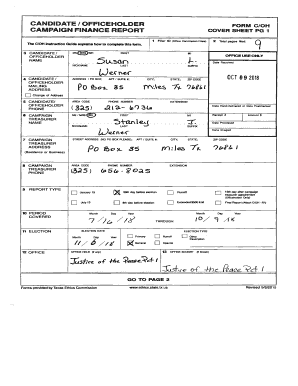 CANDIDATE / OFFICEHOLDER
CAMPAIGN FINANCE REPORT
FORM C/OH
COVER SHEET PG 1
The C/OH Instruction Guide explains how to complete this form.
1 Filer ID (Ethics Commission Filers)
2 Total pages filed:
9
3 CANDIDATE / OFFICEHOLDER NAME
FIRST
MI
Susan
L.
NICKNAME LAST SUFFIX
Werner
OFFICE USE ONLY
Date Received
OCT 09 2018
4 CANDIDATE / OFFICEHOLDER MAILING ADDRESS
Change of Address
ADDRESS / PO BOX; APT / SUITE #; CITY; STATE; ZIP CODE
PO Box 85 Miles Tx 76861
5 CANDIDATE/ OFFICEHOLDER PHONE
AREA CODE PHONE NUMBER EXTENSION
(325) 212-6736
Date Hand-delivered or Date Postmarked
6 CAMPAIGN TREASURER NAME
FIRST MI
Stanley J.
NICKNAME LAST SUFFIX
Werner
Receipt # Amount $
Date Processed
Date Imaged
7 CAMPAIGN TREASURER ADDRESS
(Residence or Business)
CITY; STATE; ZIP CODE
PO Box 85 Miles Tx 76861
8 CAMPAIGN TREASURER PHONE
AREA CODE PHONE NUMBER EXTENSION
(325) 656-8025
9 REPORT TYPE
January 15
30th day before election
Runoff
15th day after campaign treasurer appointment (Officeholder Only)
July 15
8th day before election
Final Report (Attach C/OH - FR)
10 PERIOD COVERED
Month Day Year
7/16/18
THROUGH
Month Day Year
10/9/18
11 ELECTION
ELECTION DATE
Month Day Year
11/6/18
ELECTION TYPE
Primary
Runoff
Other Description
General
Special
12 OFFICE
OFFICE HELD (if any)
Justice of the Peace Pct 1
13 OFFICE SOUGHT (if known)
Justice of the Peace Pct 1
GO TO PAGE 2
Forms provided by Texas Ethics Commission
www.ethics.state.tx.us